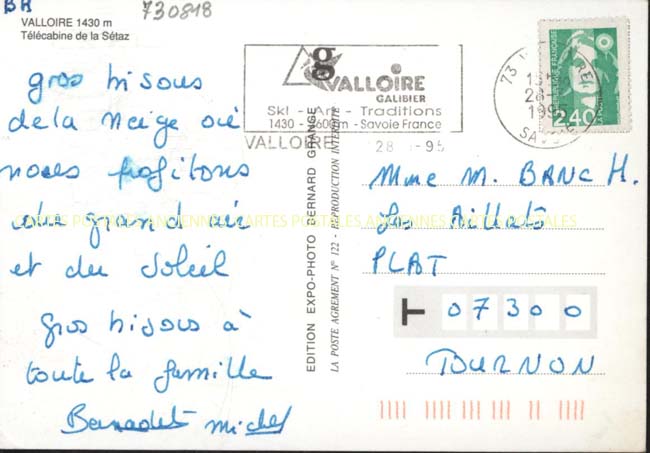 BR
730818
VALLOIRE 1430 m
Télécabine de la Sétaz
gros bisous
de la neige où
nous profitons
du grand air
et du soleil
gros bisous à
toute la famille
Bernadet Michel
g
VALLOIRE
GALIBIER
Ski - Art - Traditions
1430 - 2600m - Savoie France
VALLOIRE 28 -1-95
73
28
1995
SAVOIE
REPUBLIQUE FRANÇAISE
2,40
CARTES POSTALES ANCIENNES CARTES POSTALES ANCIENNES CARTES POSTALES
EDITION EXPO-PHOTO BERNARD GRANGE
LA POSTE AGREMENT N° 122 - REPRODUCTION INTERDITE
Mme M. BANC H.
Les Aillets
PLAT
T 07300
TOURNON